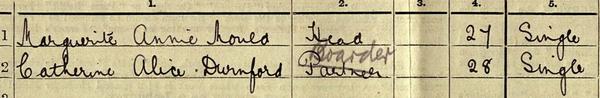 1. 2. 3. 4. 5.
1 Marguerite Annie Mould Head 27 Single
Boarder
2 Catherine Alice Durnford Partner 28 Single